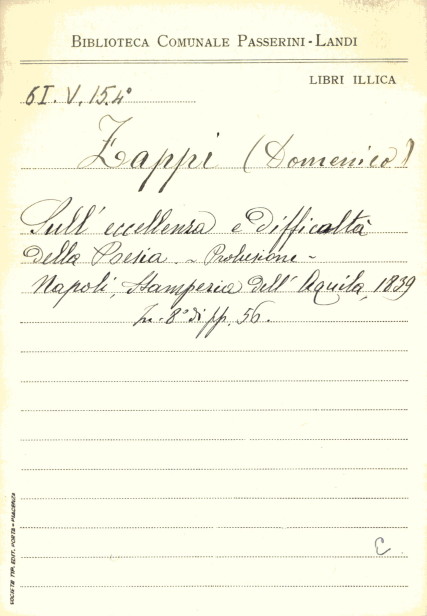 BIBLIOTECA COMUNALE PASSERINI - LANDI
LIBRI ILLICA
6I. V, 15.4°
Zappi (Domenico)
Sull' eccellenza e difficoltà
della Poesia - Prolusione -
Napoli, Stamperia dell' Aquila, 1839
In- 8° di pp. 56.
C
SOCIETÀ TIP. EDIT. PORTA - PIACENZA